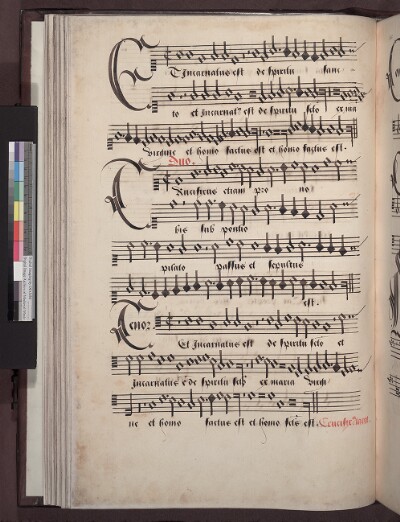 ET Incarnatus est de spiritu sanc
to et incarnat9 est de spiritu scto ex ma
virgine et homo factus est et homo factus est.
Duo.
Crucifixus etiam pro no
bis sub pontio
pilato passus et sepultus
est.
Tenor
Et Incarnatus est de spiritu scto et
Incarnatus est de spiritu ex maria virgi
ne et homo factus est et homo fcts est. Crucifix9